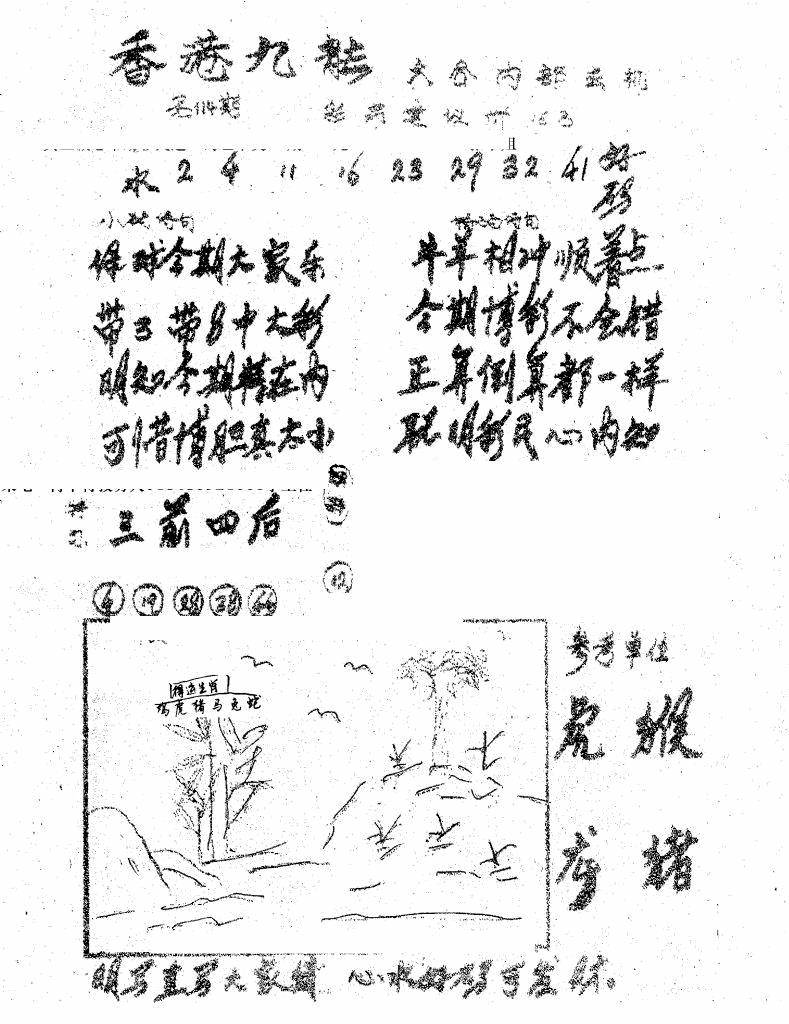 香港九龍
大谷内部玄机
第114期
水 2 4 11 16 23 29 32 41 好码
保球今期大家乐
牛羊相冲顺着点
带3带8中大彩
今期博彩不会错
明知今期特在内
正算倒算都一样
可惜博胆真太小
聪明彩民心内知
三前四后
12
4 19 28 38 44
精选生肖
鸡虎猪马兔蛇
参考单位
虎 猴
龙 猪
明写直写大家猜 心水好码可发财。